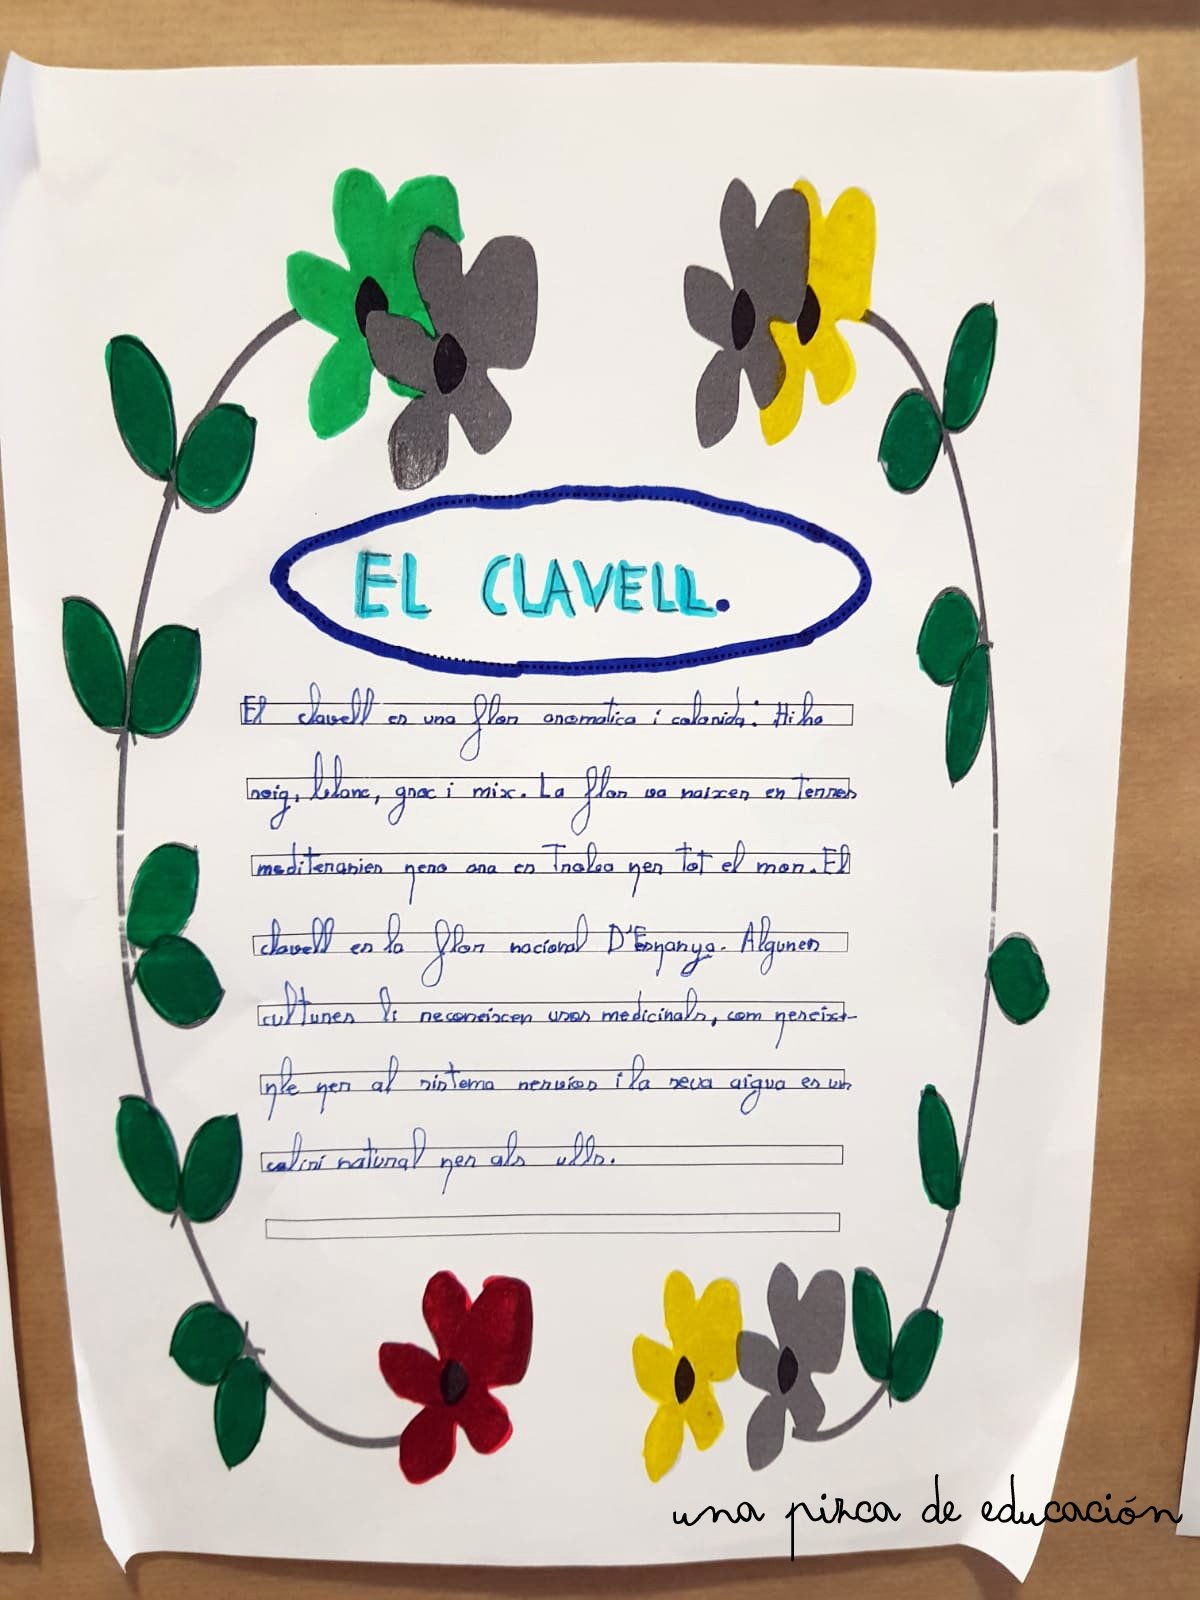 EL CLAVELL.
El clavell es una flor aromatica i colorida: Hi ha
roig, blanc, groc i mix. La flor va naixer en terres
mediteranies pero ara es troba per tot el mon. El
clavell es la flor nacional D'Espanya. Algunes
cultures li reconeixen usos medicinals, com pereixe-
ple per al sistema nerviós i la seva aigua es un
coliri natural per als ulls.
una pizca de educación